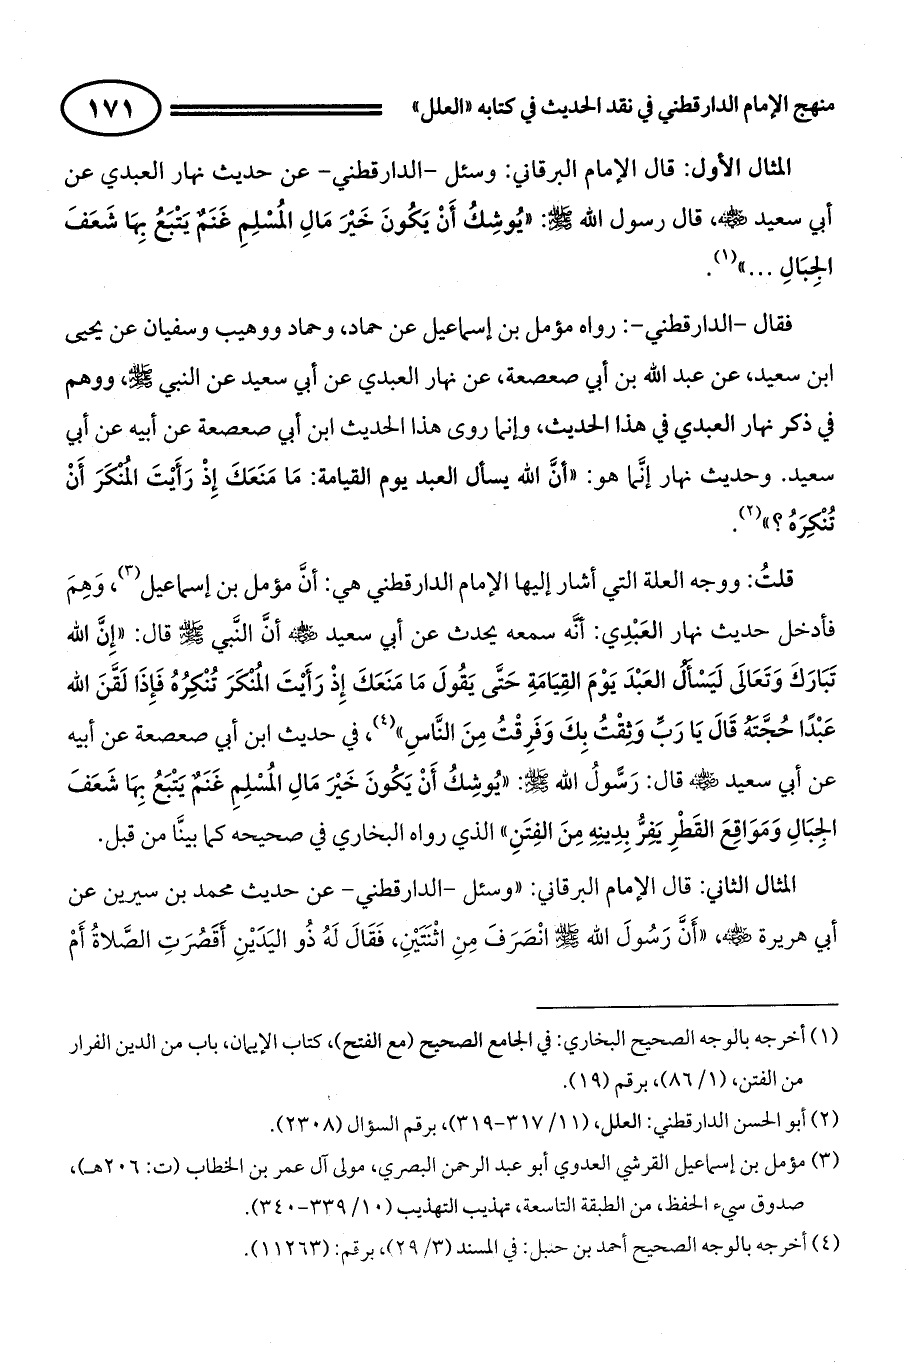 منهج الإمام الدارقطني في نقد الحديث في كتابه «العلل» ١٧١
المثال الأول: قال الإمام البرقاني: وسئل -الدارقطني- عن حديث نهار العبدي عن
أبي سعيد ﵁، قال رسول الله ﷺ: «يُوشِكُ أَنْ يَكُونَ خَيْرَ مَالِ الْمُسْلِمِ غَنَمٌ يَتْبَعُ بِهَا شَعَفَ
الجِبَالِ ...»(١).
فقال -الدارقطني-: رواه مؤمل بن إسماعيل عن حماد، وحماد ووهيب وسفيان عن يحيى
ابن سعيد، عن عبد الله بن أبي صعصعة، عن نهار العبدي عن أبي سعيد عن النبي ﷺ، ووهم
في ذكر نهار العبدي في هذا الحديث، وإنما روى هذا الحديث ابن أبي صعصعة عن أبيه عن أبي
سعيد. وحديث نهار إنَّما هو: «أنَّ الله يسأل العبد يوم القيامة: مَا مَنَعَكَ إِذْ رَأَيْتَ الْمُنْكَرَ أَنْ
تُنْكِرَهُ ؟»(٢).
قلتُ: ووجه العلة التي أشار إليها الإمام الدارقطني هي: أنَّ مؤمل بن إسماعيل(٣)، وَهِمَ
فأدخل حديث نهار العَبْدِي: أنَّه سمعه يحدث عن أبي سعيد ﵁ أنَّ النَّبي ﷺ قال: «إِنَّ الله
تَبَارَكَ وَتَعَالَى لَيَسْأَلُ العَبْدَ يَوْمَ القِيَامَةِ حَتَّى يَقُولَ مَا مَنَعَكَ إِذْ رَأَيْتَ الْمُنْكَرَ تُنْكِرُهُ فَإِذَا لَقَّنَ الله
عَبْدًا حُجَّتَهُ قَالَ يَا رَبِّ وَثِقْتُ بِكَ وَفَرِقْتُ مِنَ النَّاسِ»(٤)، في حديث ابن أبي صعصعة عن أبيه
عن أبي سعيد ﵁ قال: رَسُولُ الله ﷺ: «يُوشِكُ أَنْ يَكُونَ خَيْرَ مَالِ الْمُسْلِمِ غَنَمٌ يَتْبَعُ بِهَا شَعَفَ
الجِبَالِ وَمَوَاقِعَ القَطْرِ يَفِرُّ بِدِينِهِ مِنَ الفِتَنِ» الذي رواه البخاري في صحيحه كما بينَّا من قبل.
المثال الثاني: قال الإمام البرقاني: «وسئل -الدارقطني- عن حديث محمد بن سيرين عن
أبي هريرة ﵁، «أَنَّ رَسُولَ الله ﷺ انْصَرَفَ مِنِ اثْنَتَيْنِ، فَقَالَ لَهُ ذُو اليَدَيْنِ أَقَصُرَتِ الصَّلاةُ أَمْ
(١) أخرجه بالوجه الصحيح البخاري: في الجامع الصحيح (مع الفتح)، كتاب الإيمان، باب من الدين الفرار
من الفتن، (١/ ٨٦)، برقم (١٩).
(٢) أبو الحسن الدارقطني: العلل، (١١/ ٣١٧-٣١٩)، برقم السؤال (٢٣٠٨).
(٣) مؤمل بن إسماعيل القرشي العدوي أبو عبد الرحمن البصري، مولى آل عمر بن الخطاب (ت: ٢٠٦هـ)،
صدوق سيء الحفظ، من الطبقة التاسعة، تهذيب التهذيب (١٠/ ٣٣٩-٣٤٠).
(٤) أخرجه بالوجه الصحيح أحمد بن حنبل: في المسند (٣/ ٢٩)، برقم: (١١٢٦٣).